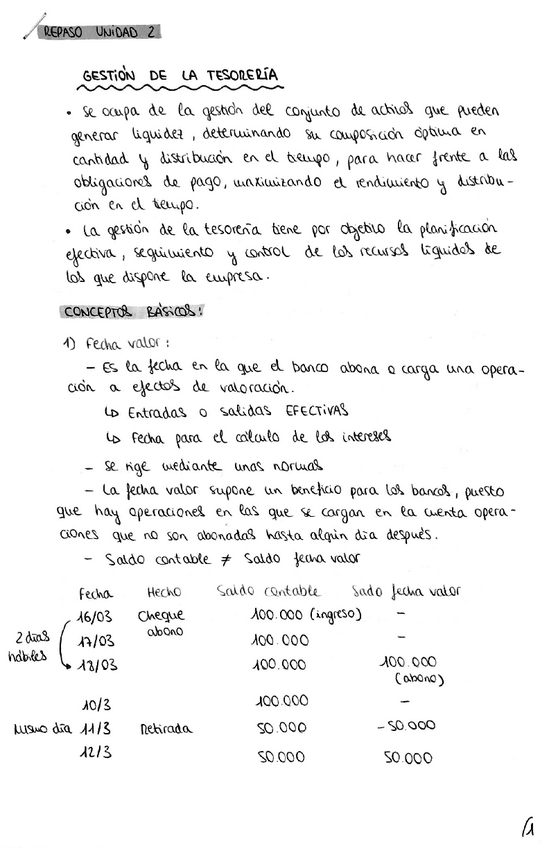 REPASO UNIDAD 2
GESTIÓN DE LA TESORERÍA
• Se ocupa de la gestión del conjunto de activos que pueden
generar liquidez, determinando su composición óptima en
cantidad y distribución en el tiempo, para hacer frente a las
obligaciones de pago, maximizando el rendimiento y distribu-
ción en el tiempo.
• La gestión de la tesorería tiene por objetivo la planificación
efectiva, seguimiento y control de los recursos líquidos de
los que dispone la empresa.
CONCEPTOS BÁSICOS:
1) Fecha valor:
- Es la fecha en la que el banco abona o carga una opera-
ción a efectos de valoración.
↳ Entradas o salidas EFECTIVAS
↳ Fecha para el cálculo de los intereses
- Se rige mediante unas normas
- La fecha valor supone un beneficio para los bancos, puesto
que hay operaciones en las que se cargan en la cuenta opera-
ciones que no son abonadas hasta algún día después.
- Saldo contable ≠ Saldo fecha valor
Fecha Hecho Saldo contable Sado fecha valor
16/03 Cheque 100.000 (ingreso) -
2 días 17/03 abono 100.000 -
hábiles 18/03 100.000 100.000
(abono)
10/3 100.000 -
Mismo día 11/3 Retirada 50.000 -50.000
12/3 50.000 50.000
/1